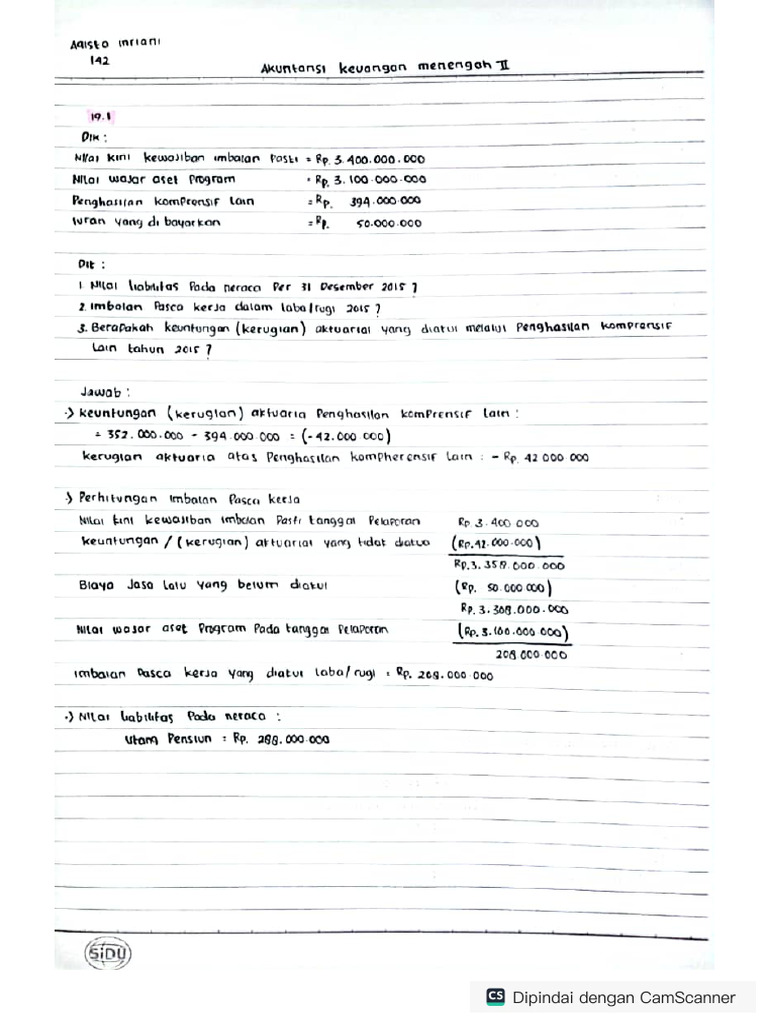 Agista Inriani
142
Akuntansi keuangan menengah II
19.1
Dik :
Nilai kini kewajiban imbalan Pasti = Rp. 3.400.000.000
Nilai wajar aset Program = Rp. 3.100.000.000
Penghasilan komprensif lain = Rp. 394.000.000
Iuran yang di bayarkan = Rp. 50.000.000
Dit :
1. Nilai liabilitas Pada neraca Per 31 Desember 2015 ?
2. Imbalan Pasca kerja dalam laba/rugi 2015 ?
3. Berapakah keuntungan (kerugian) aktuarial yang diakui melalui Penghasilan komprensif
Lain tahun 2015 ?
Jawab :
·) keuntungan (kerugian) aktuaria Penghasilan komprensif lain :
= 352.000.000 - 394.000.000 = (-42.000.000)
kerugian aktuaria atas Penghasilan kompherensif lain : - Rp. 42.000.000
·) Perhitungan imbalan Pasca kerja
Nilai kini kewajiban imbalan Pasti tanggal Pelaporan Rp. 3.400.000
keuntungan / (kerugian) aktuarial yang tidak diakui (Rp.42.000.000)
Rp.3.358.000.000
Biaya Jasa lalu yang belum diakui (Rp. 50.000.000)
Rp. 3.308.000.000
Nilai wajar aset Program Pada tanggal Pelaporan (Rp.3.100.000.000)
208.000.000
Imbalan Pasca kerja yang diakui laba/rugi = Rp. 208.000.000
·) Nilai liabilitas Pada neraca :
Utang Pensiun = Rp. 288.000.000
SiDU
CS Dipindai dengan CamScanner